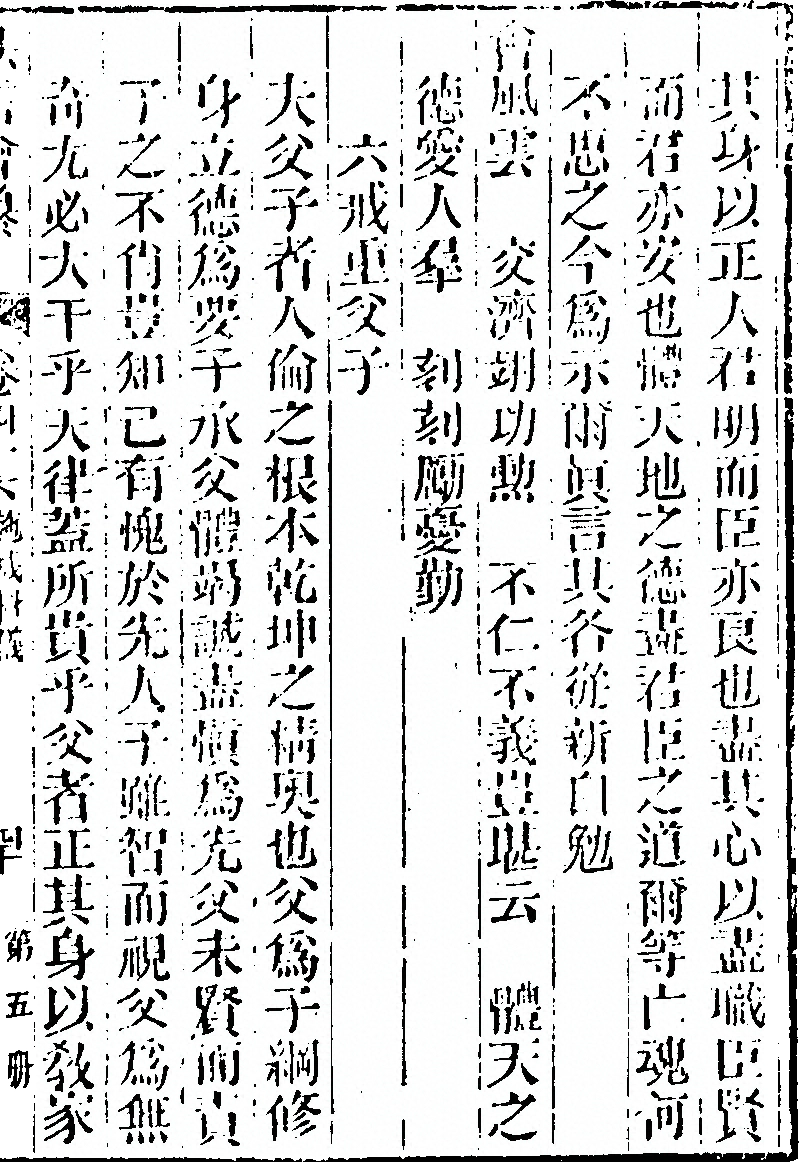 其身以正人君明而臣亦良也盡其心以盡職臣賢
而君亦安也體天地之德盡君臣之道爾等亡魂何
不思之今爲示爾眞言其各從新自勉
會風雲　交濟翊功勲　不仁不義豈堪云　體天之
德愛人羣　刻刻勵憂勤
六戒重父子
夫父子者人倫之根本乾坤之精奥也父爲子綱修
身立德爲要子承父體竭誠盡愼爲先父未賢而責
子之不肖豈知已有愧於先人子雖智而視父爲無
奇尤必大干乎天律蓋所貴乎父者正其身以敎家
第五册